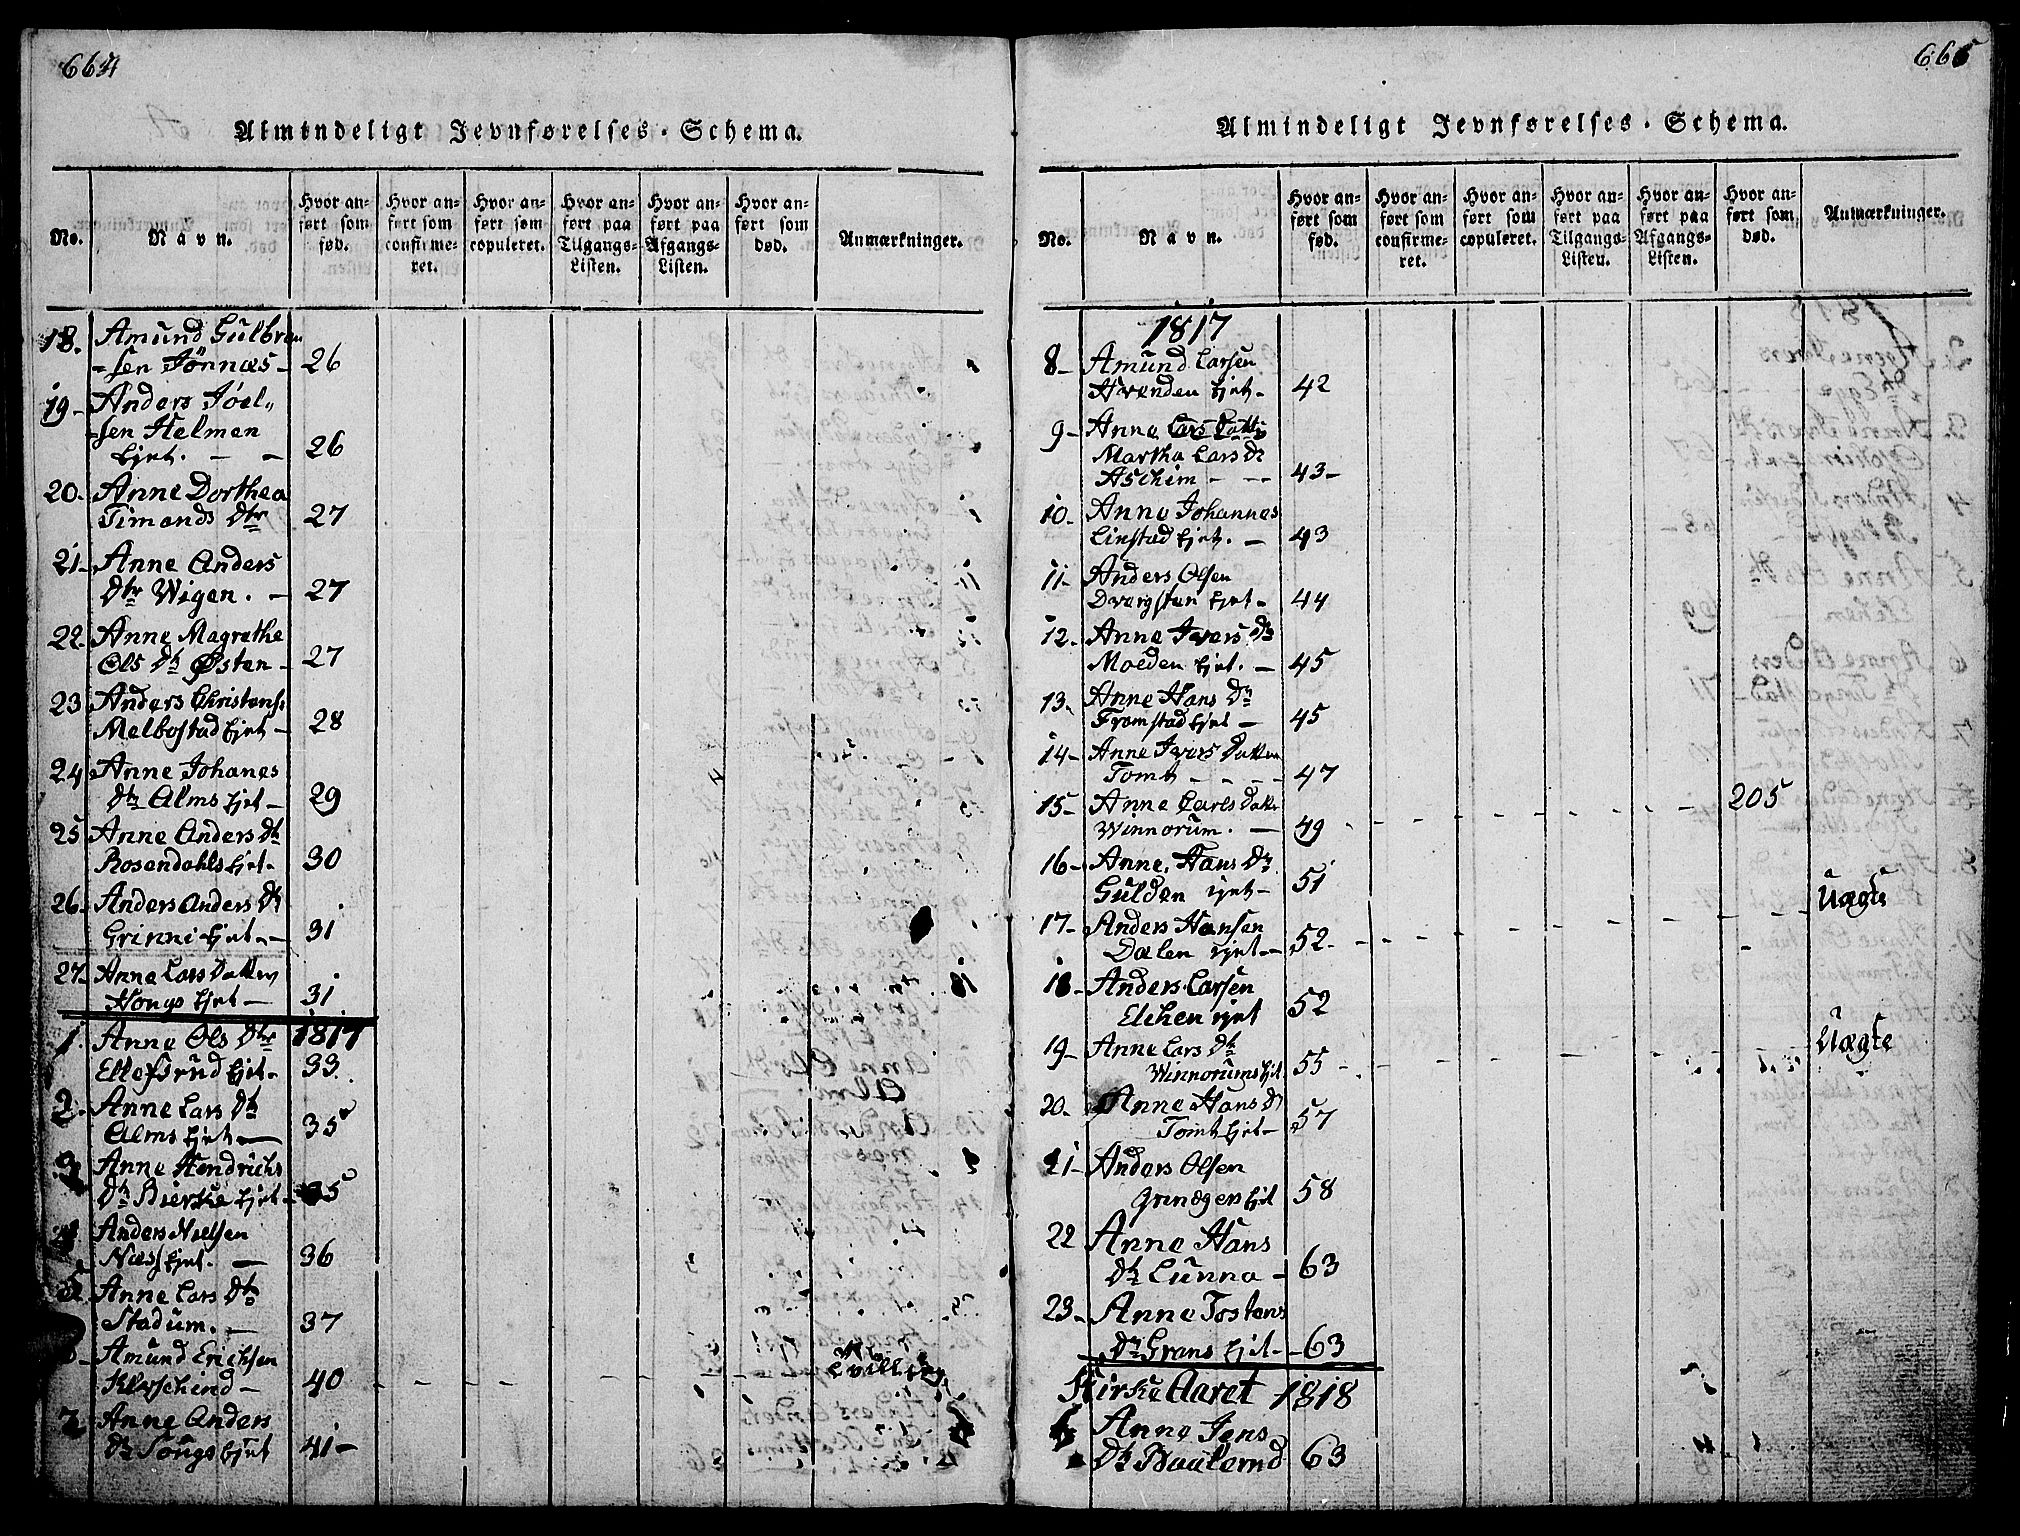 664
Almindeligt Jevnførelses-Schema.
No. Navn. Hvor anført som fød. Hvor anført som confirmeret. Hvor anført som copuleret. Hvor anført paa Tilgangs-Listen. Hvor anført paa Afgangs-Listen. Hvor anført som død. Anmærkninger.
18. Amund Gulbran
-sen Jönnæs - 26
19- Anders Joel„
-sen Helmen
Ejet. - - 26
20. Anne Dorthea
Timands Dtr 27
21- Anne Anders
Dtr Wigen. - 27
22. Anne Magrethe
Ols Dtr Østen - 27
23 Anders Christens.
Melbostad Ejet - 28
24 Anne Johanes
Dtr Alms Ejet - 29
25 Anne Anders Dtr
Rosendahls Ejet - 30
26. Anders Anders Dtr
Grinni Ejet - 31
27- Anne Lars Datter
Hongs Ejet - 31
1. Anne Ols Dtr 1817
Ellefsrud Ejet. 33
2. Anne Lars Dtr
Alms Ejet - 35
3 Anne Hendrichs
Dtr Bierke Ejet - 35
4 Anders Nielsen
Næss Ejet. - 36
5 Anne Lars Dtr
Stadum. - 37
Amund Erichsen
- 40 - - - -
7 Anne Anders
Dtr Ejet 41-
665
Almindeligt Jevnførelses-Schema.
No. Navn. Hvor anført som fød. Hvor anført som confirmeret. Hvor anført som copuleret. Hvor anført paa Tilgangs-Listen. Hvor anført paa Afgangs-Listen. Hvor anført som død. Anmærkninger.
1817
8- Amund Larsen
Hvenden Ejet- 42
9- Anne Lars Datter
Martha Lars Dr
Aschim - - - 43-
10- Anne Johannes
Linstad Ejet. - 43
11- Anders Olsen
Dvergsten Ejet- 44
12. Anne Ivers Dtr
Molden Ejet. - 45
13. Anne Hans Dtr
Framstad Ejet - 45
14- Anne Ivers Datter
Tomt - - - - 47
15- Anne Carls Datter
Winnorum. - 49 - - - - 205
16- Anne Hans Dtr
Gulden Ejet- 51
17- Anders Hansen Uægte
Dælen Ejet - 52. - - -
18- Anders Larsen
Elchen Ejet 52
19- Anne Lars Dtr Uægte
Winnorums Ejet 55 - - -
20. Anne Hans Dr
Tomt Ejet - 57
21- Anders Olsen
Ejet 58
22 Anne Hans
Dtr Lunna - 63
23- Anne Tostens
Dtr Grans Ejet - 63
Kirke Aaret 1818
1 Anne Jens
Dtr 63